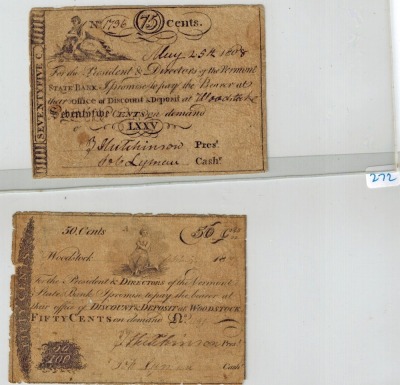 N. 1736 75 Cents.
May 25th 1808
For the President & Directors of the Vermont
STATE BANK I promise to pay the Bearer at
their Office of Discount & Deposit at Woodstock
Seventyfive CENTS on demand
LXXV
J Hutchinson Pres!
Job Lyman Cash!
SEVENTYFIVE C.
272
50. Cents 50
Woodstock
For the President & DIRECTORS of the Vermont
State Bank I promise to pay the bearer at
their office of DISCOUNT & DEPOSIT at WOODSTOCK
FIFTY CENTS on demand
J Hutchinson Pres!
Cash!
50
100